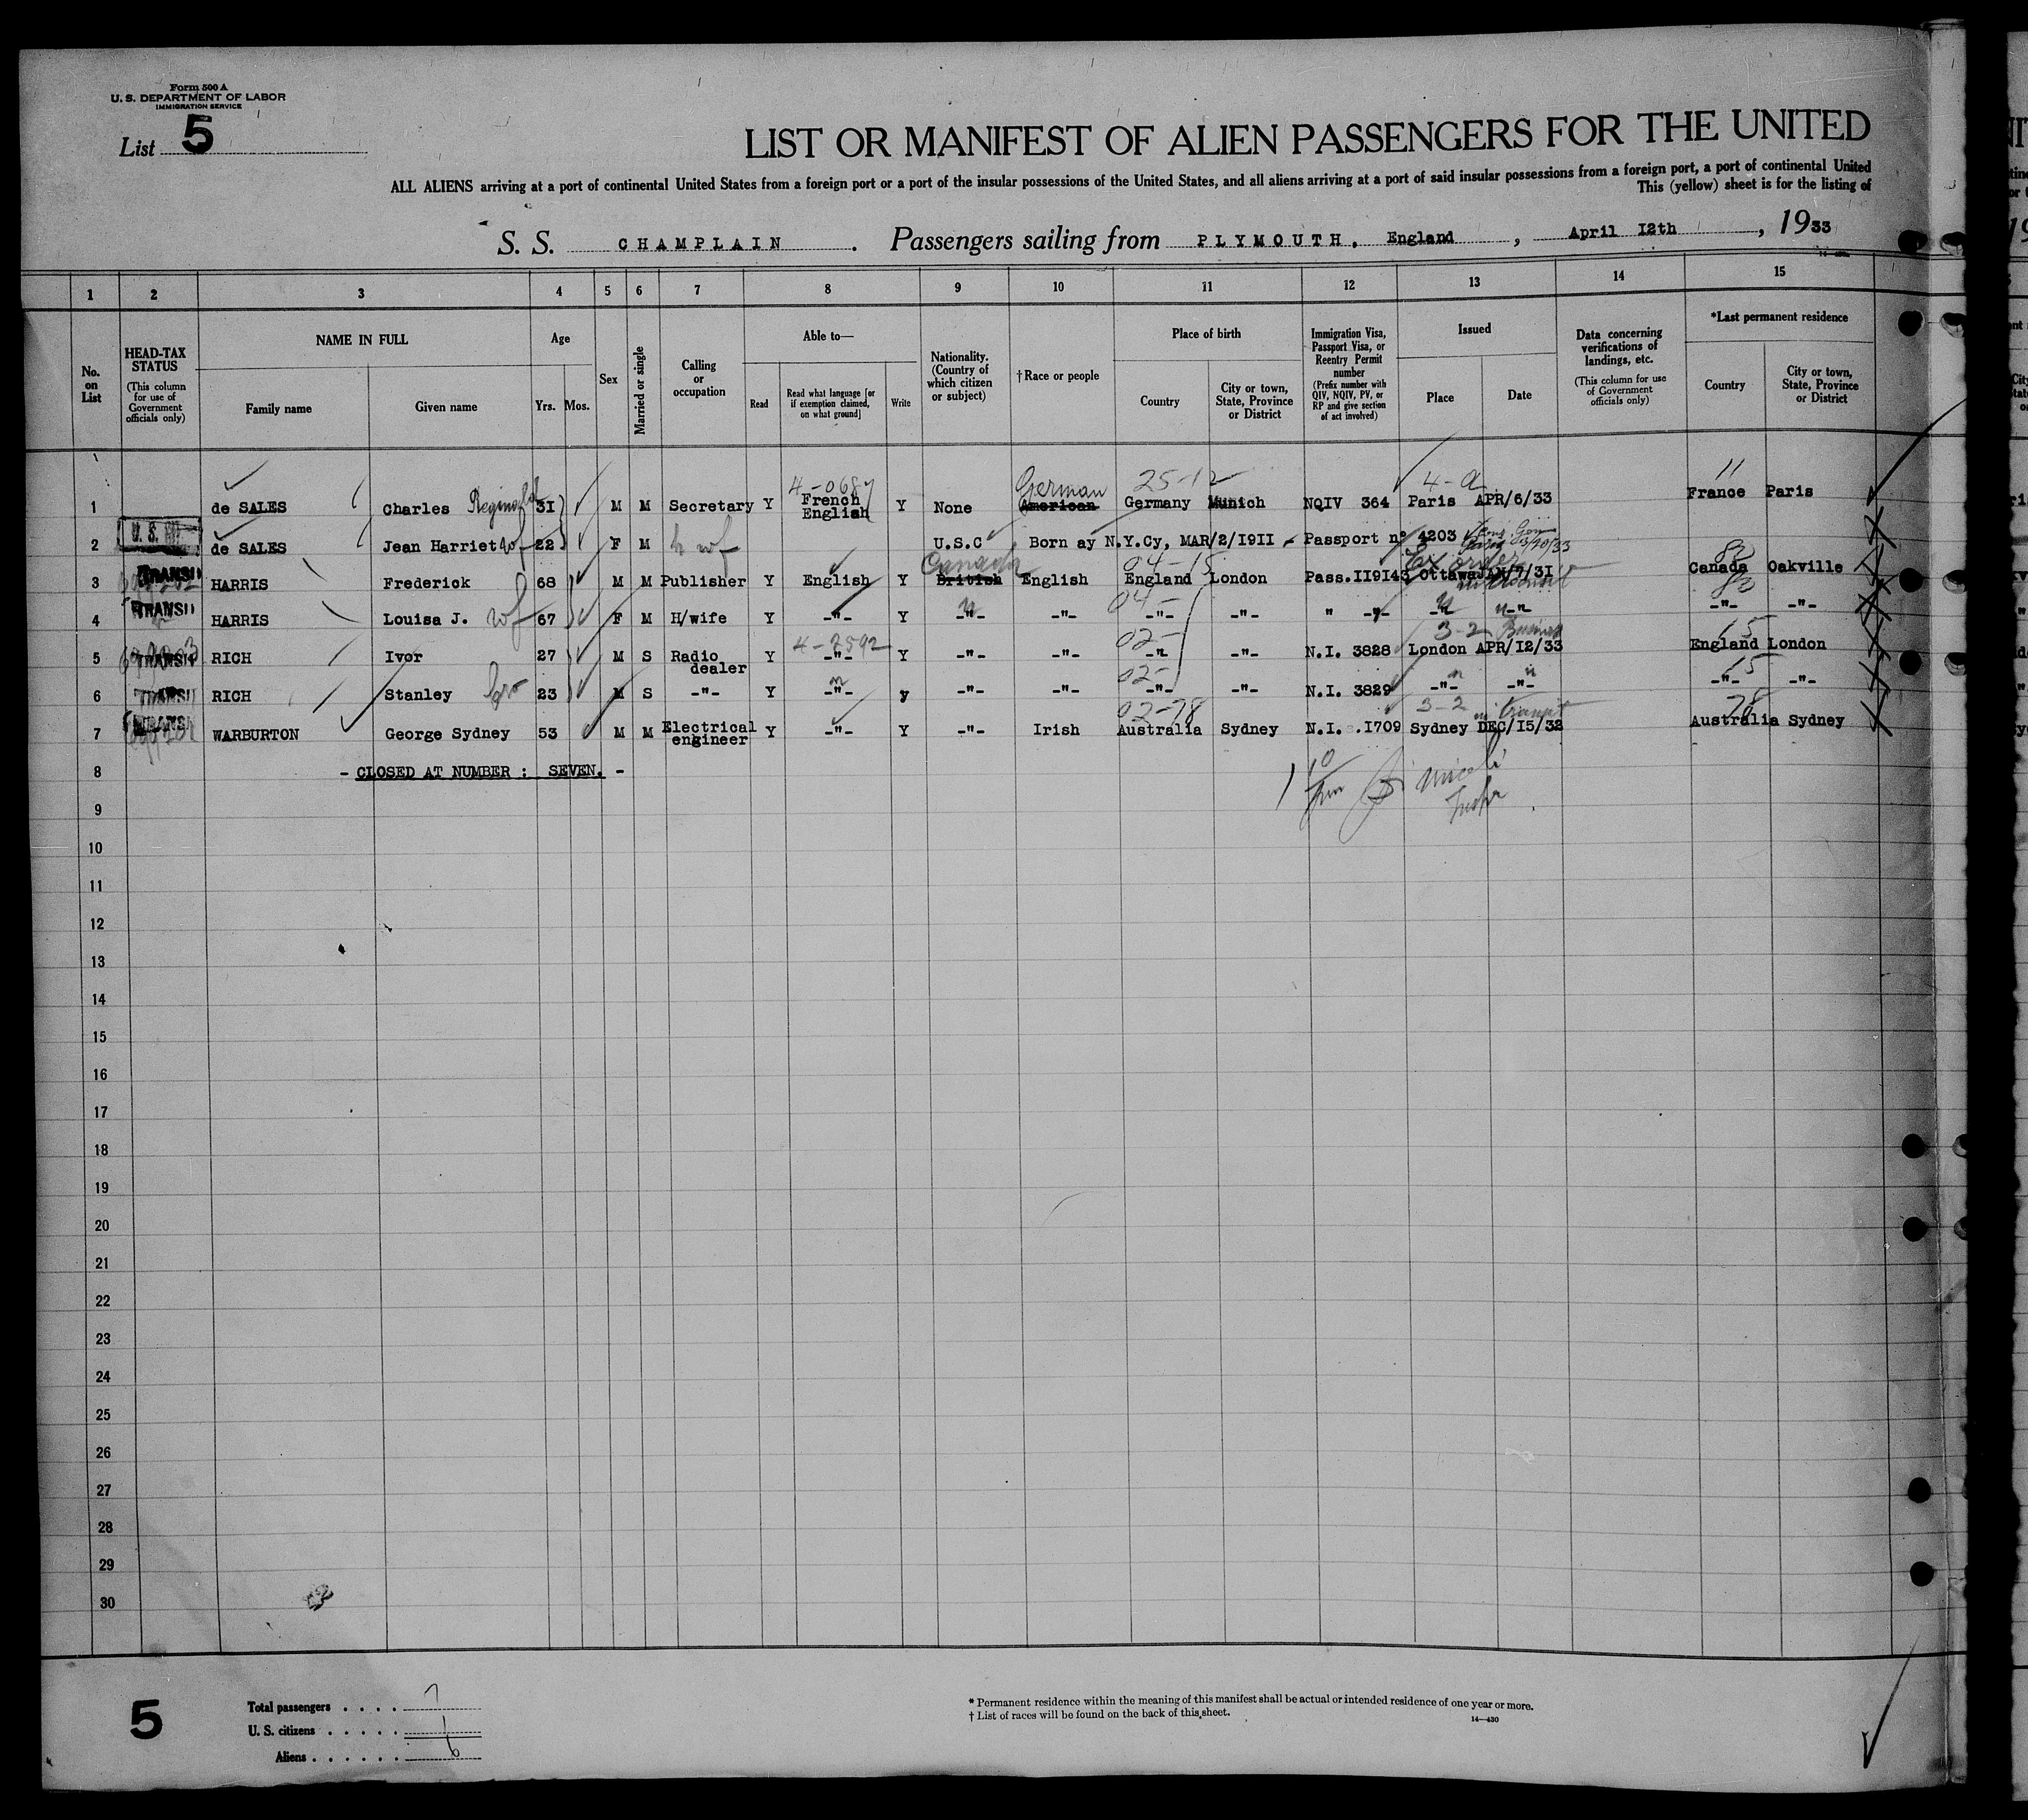 Form 500 A
U. S. DEPARTMENT OF LABOR
IMMIGRATION SERVICE
List 5
LIST OR MANIFEST OF ALIEN PASSENGERS FOR THE UNITED
ALL ALIENS arriving at a port of continental United States from a foreign port or a port of the insular possessions of the United States, and all aliens arriving at a port of said insular possessions from a foreign port, a port of continental United
This (yellow) sheet is for the listing of
S. S. CHAMPLAIN . Passengers sailing from PLYMOUTH. England , April I2th , 1933
1 2 3 4 5 6 7 8 9 10 11 12 13 14 15
No. on List
HEAD-TAX STATUS (This column for use of Government officials only)
NAME IN FULL
Family name
Given name
Age
Yrs. Mos.
Sex
Married or single
Calling or occupation
Able to—
Read
Read what language [or if exemption claimed, on what ground]
Write
Nationality. (Country of which citizen or subject)
† Race or people
Place of birth
Country
City or town, State, Province or District
Immigration Visa, Passport Visa, or Reentry Permit number (Prefix number with QIV, NQIV, PV, or RP and give section of act involved)
Issued
Place
Date
Data concerning verifications of landings, etc. (This column for use of Government officials only)
*Last permanent residence
Country
City or town, State, Province or District
4-0687 German 25-12 4-a 11
1 de SALES Charles Reginald 31 M M Secretary Y French English Y None American Germany Munich NQIV 364 Paris APR/6/33 France Paris
2 de SALES Jean Harriet wf 22 F M h wf U.S.C Born ay N.Y.Cy, MAR/2/I9II - Passport nº 4203
Canada 04-15 83
3 TRANSIT HARRIS Frederick 68 M M Publisher Y English Y British English England London Pass.II9I43 Ottawa JAN/7/31 Canada Oakville
04- 83
4 TRANSIT HARRIS Louisa J. wf 67 F M H/wife Y -"- Y -"- -"- -"- -"- " -"- -"- -"- -"- -"-
4-2592 02- 3-2 15
5 TRANSIT RICH Ivor 27 M S Radio dealer Y -"- Y -"- -"- -"- -"- N.I. 3828 London APR/I2/33 England London
02- 15
6 TRANSIT RICH Stanley bro 23 M S -"- Y -"- Y -"- -"- -"- -"- N.I. 3829 -"- -"- -"- -"-
02-78 3-2 in transit 78
7 TRANSIT WARBURTON George Sydney 53 M M Electrical engineer Y -"- Y -"- Irish Australia Sydney N.I. .I709 Sydney DEC/I5/32 Australia Sydney
8 - CLOSED AT NUMBER : SEVEN. -
9
10
11
12
13
14
15
16
17
18
19
20
21
22
23
24
25
26
27
28
29
30
5
Total passengers . . . . 7
U. S. citizens . . . . . 1
Aliens . . . . . . 6
* Permanent residence within the meaning of this manifest shall be actual or intended residence of one year or more.
† List of races will be found on the back of this sheet.
14—430